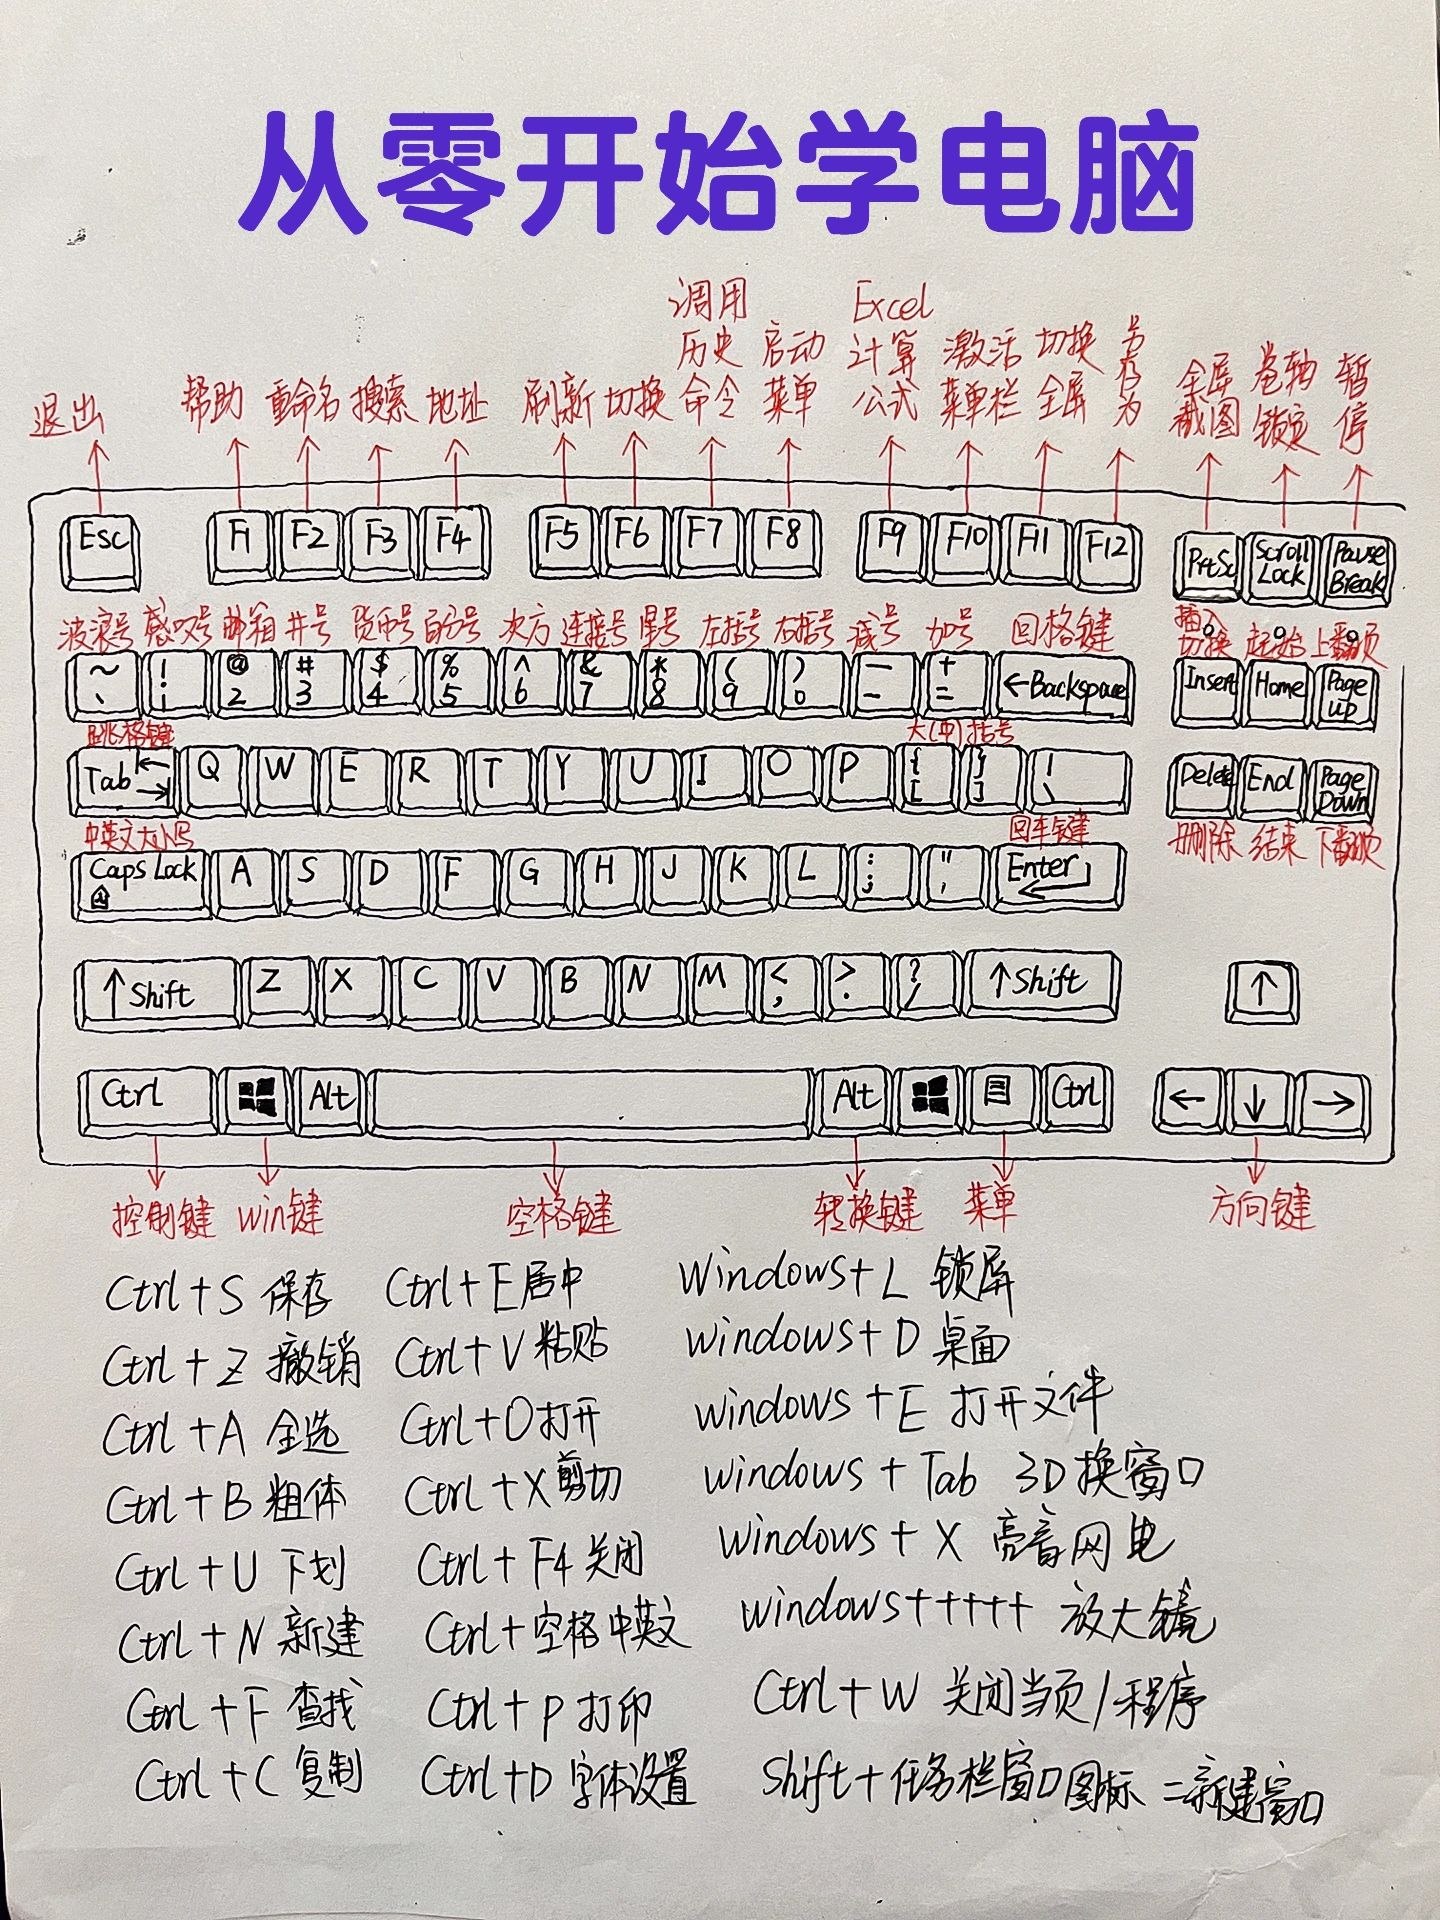 从零开始学电脑
退出 帮助 重命名 搜索 地址 刷新 切换 调用历史命令 启动菜单 Excel计算公式 激活菜单栏 切换全屏 另存为 全屏截图 卷轴锁定 暂停
Esc F1 F2 F3 F4 F5 F6 F7 F8 F9 F10 F11 F12 PrtSc Scroll Lock Pause Break
波浪号 感叹号 邮箱 井号 货币号 百分号 次方 连接号 星号 左括号 右括号 减号 加号 回格键 插入切换 起始 上翻页
~ ` ! @ 2 # 3 $ 4 % 5 ^ 6 & 7 * 8 ( 9 ) 0 — - + = ←Backspace Insert Home Page up
跳格键 大(中)括号
Tab Q W E R T Y U I O P { [ } ] ! \ Delete End Page Down
中英文大小写 回车键 删除 结束 下翻页
Caps Lock A S D F G H J K L : ; " , Enter
↑Shift Z X C V B N M < , > . ? / ↑Shift ↑
Ctrl Alt Alt Ctrl ← ↓ →
控制键 win键 空格键 转换键 菜单 方向键
Ctrl+S 保存 Ctrl+E居中 Windows+L 锁屏
Ctrl+Z 撤销 Ctrl+V粘贴 windows+D 桌面
Ctrl+A 全选 Ctrl+O打开 windows+E 打开文件
Ctrl+B 粗体 Ctrl+X剪切 windows+Tab 3D换窗口
Ctrl+U 下划 Ctrl+F4关闭 windows+X 亮音网电
Ctrl+N 新建 Ctrl+空格中英文 windows+++++ 放大镜
Ctrl+F 查找 Ctrl+P打印 Ctrl+W 关闭当页/程序
Ctrl+C 复制 Ctrl+D 字体设置 Shift+任务栏窗口图标=新建窗口